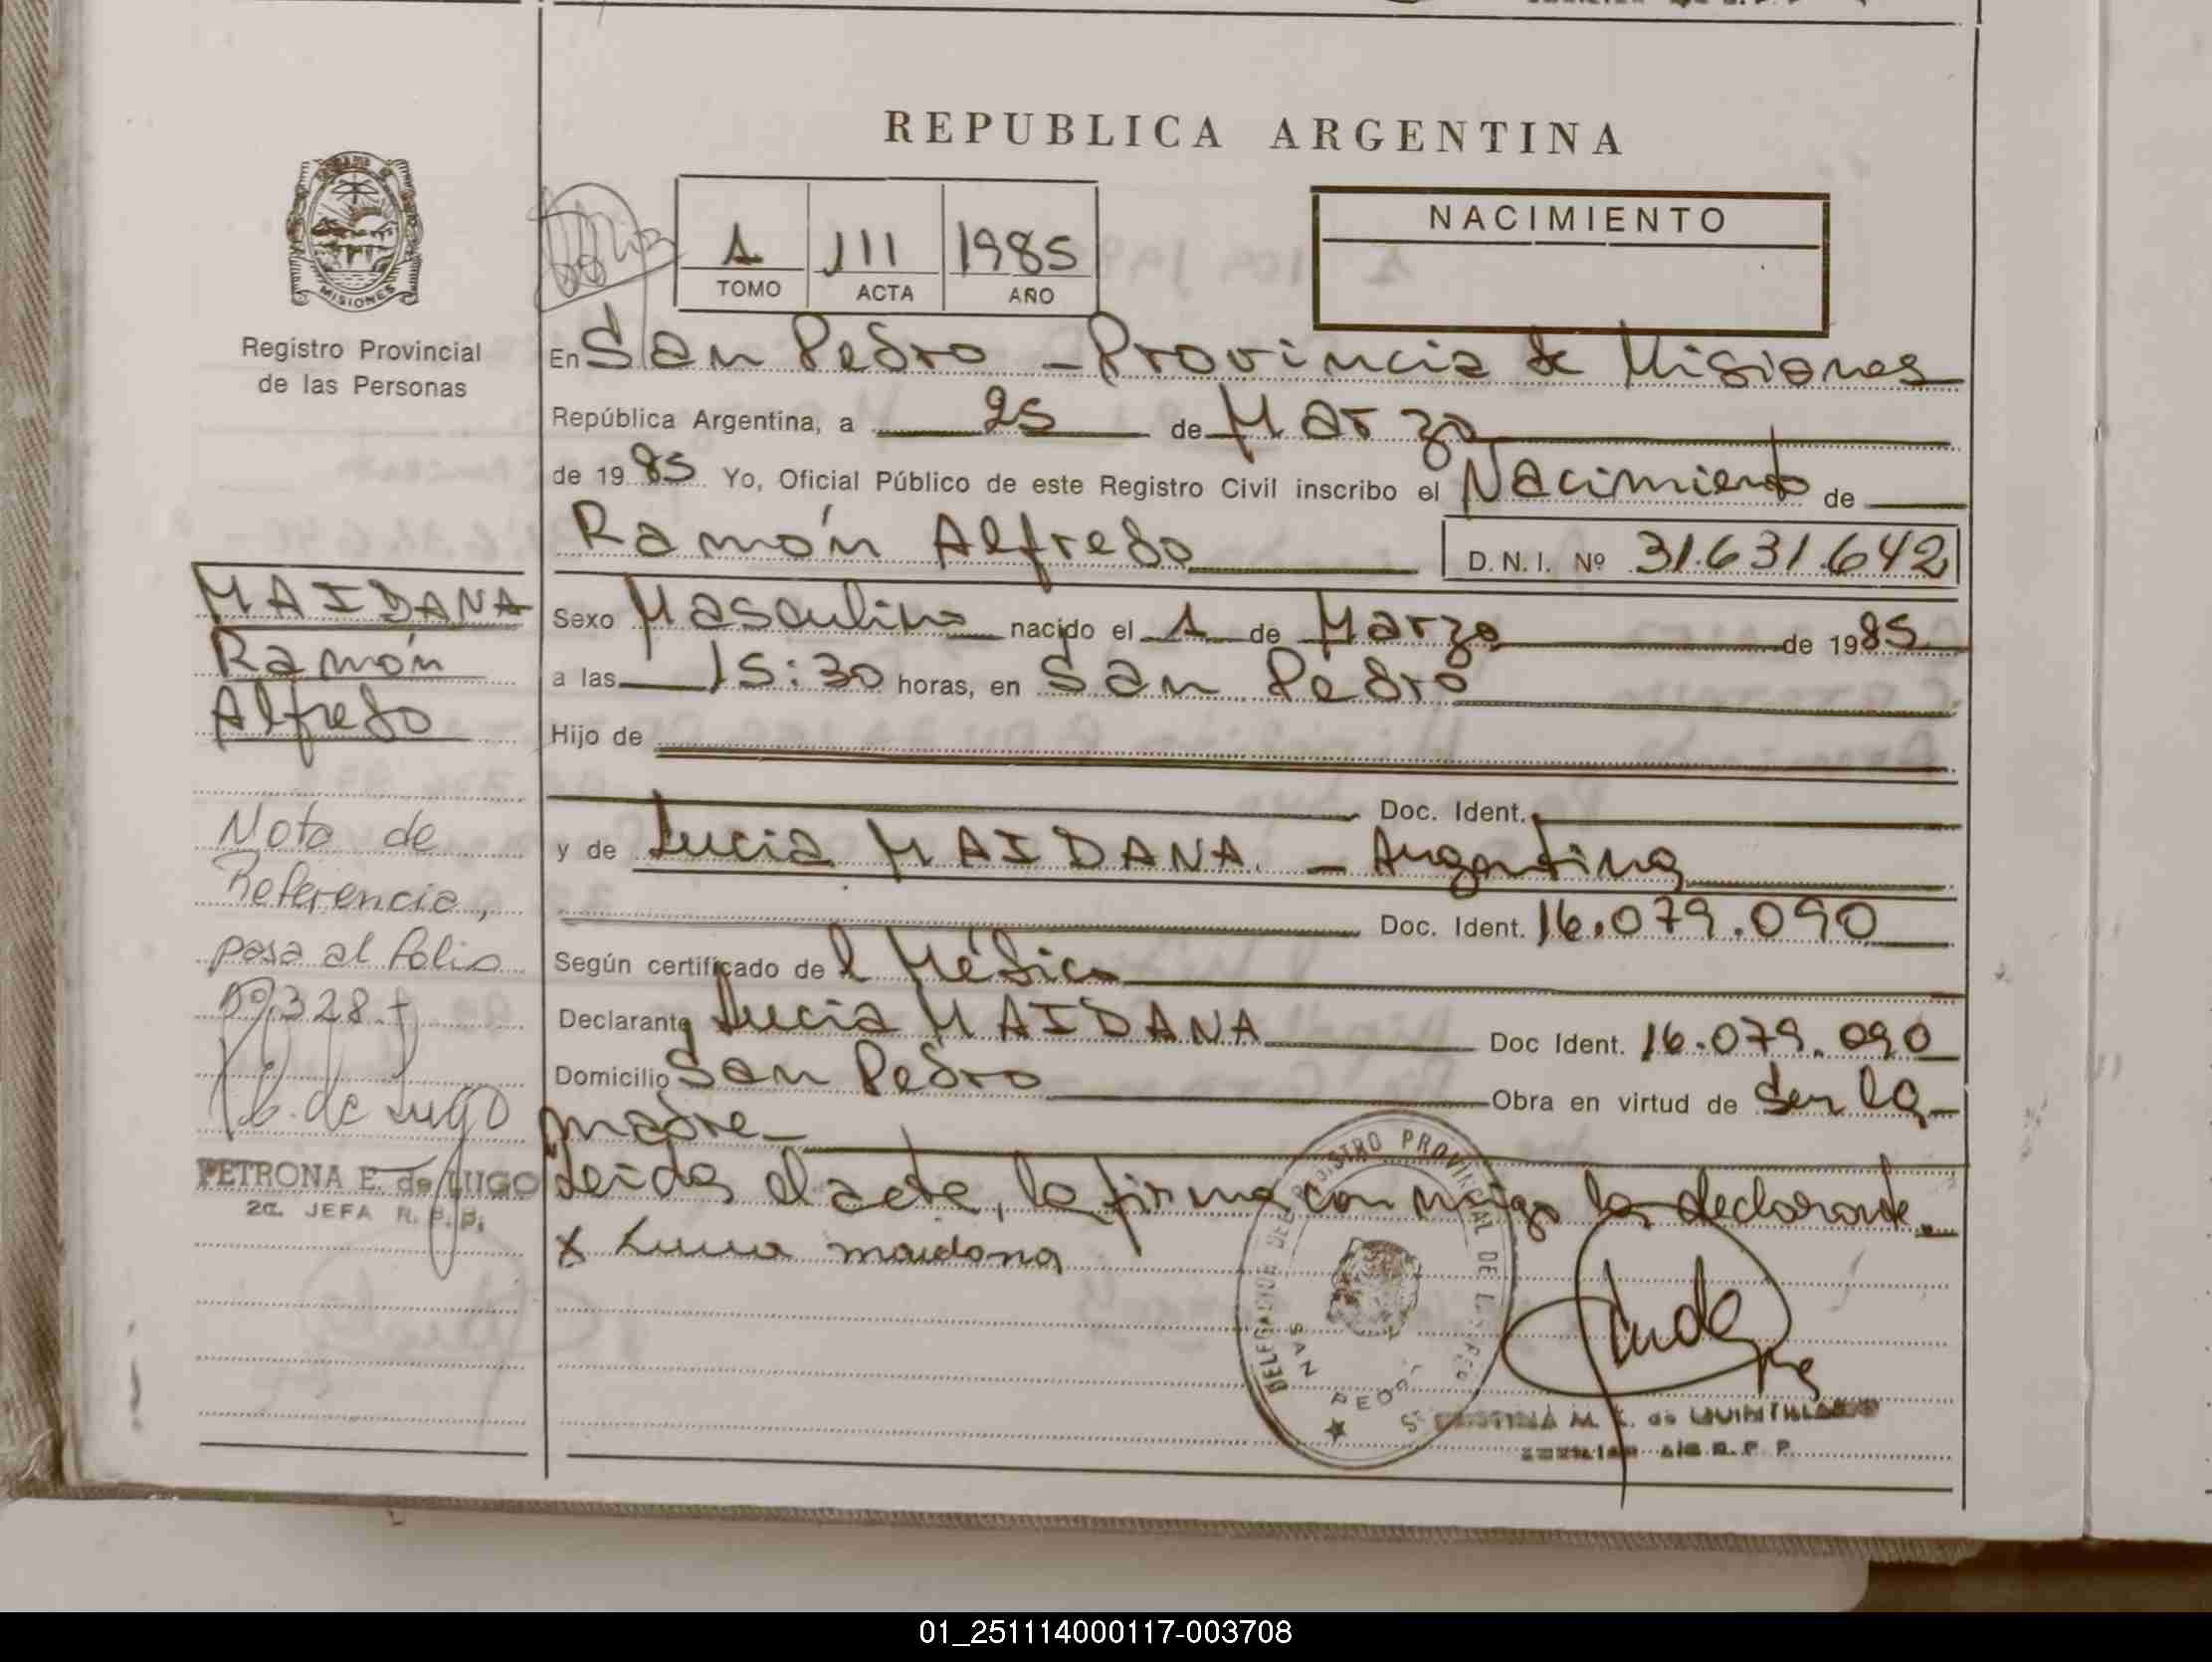 REPUBLICA ARGENTINA
MISIONES
Registro Provincial
de las Personas
1 111 1985
TOMO ACTA AÑO
NACIMIENTO
En San Pedro - Provincia de Misiones
República Argentina, a 25 de Marzo
de 1985 Yo, Oficial Público de este Registro Civil inscribo el Nacimiento de
Ramón Alfredo D.N.I. Nº 31.631.642
Sexo Masculino nacido el 1 de Marzo de 1985
a las 15:30 horas, en San Pedro
Hijo de
Doc. Ident.
y de Lucia MAIDANA. - Argentina
Doc. Ident. 16.079.090
Según certificado del Médico
Declarante Lucia MAIDANA Doc Ident. 16.079.090
Domicilio San Pedro Obra en virtud de Ser la
madre-
Leida el acta, la firma conmigo la declarante.
x Lucia maidana
MAIDANA
Ramón
Alfredo
Nota de
Referencia,
pasa al folio
Nº 328.
E. de Lugo
PETRONA E. de LUGO
2a. JEFA R. P. P.
DELEGACION DEL REGISTRO PROVINCIAL DE LAS
SAN PEDRO
CRISTINA M. de QUINTILLANO
AUXILIAR R. P. P.
01_251114000117-003708